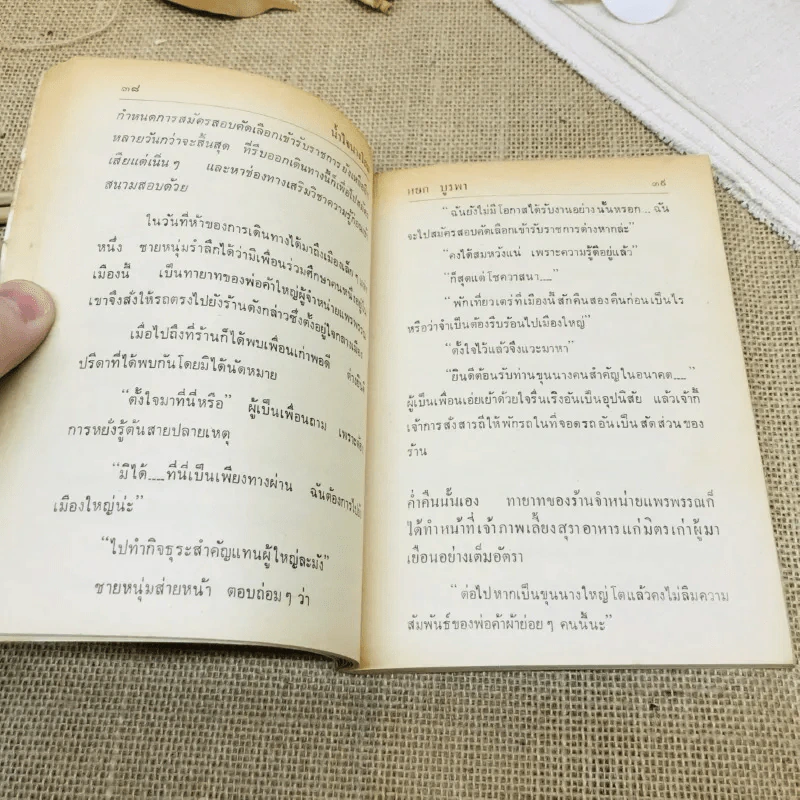 ๓๘
น้ำใจนางโจร
กำหนดการสมัครสอบคัดเลือกเข้ารับราชการ ยังเหลืออีก
หลายวันกว่าจะสิ้นสุด ที่รีบออกเดินทางนี้ก็เพื่อ
เสียแต่เนิ่นๆ และหาช่องทางเสริมวิชาความรู้
สนามสอบด้วย
ในวันที่ห้าของการเดินทางได้มาถึงเมืองเล็กๆ
หนึ่ง ชายหนุ่มรำลึกได้ว่ามีเพื่อนร่วมศึกษาคนหนึ่ง
เมืองนี้ เป็นทายาทของพ่อค้าใหญ่ผู้จำหน่ายแพรพรรณ
เขาจึงสั่งให้รถตรงไปยังร้านดังกล่าวซึ่งตั้งอยู่ใจกลางเมือง
เมื่อไปถึงที่ร้านก็ได้พบเพื่อนเก่าพอดี ต่างยินดี
ปรีดาที่ได้พบกันโดยมิได้นัดหมาย
“ตั้งใจมาที่นี่หรือ” ผู้เป็นเพื่อนถาม เพราะ
การหยั่งรู้ต้นสายปลายเหตุ
“มิได้.....ที่นี่เป็นเพียงทางผ่าน ฉันต้องการไป
เมืองใหญ่น่ะ”
“ไปทำกิจธุระสำคัญแทนผู้ใหญ่ละมัง”
ชายหนุ่มส่ายหน้า ตอบถ่อมๆ ว่า
บูรพา ๓๙
“ฉันยังไม่มีโอกาสได้รับงานอย่างนั้นหรอก... ฉัน
จะไปสมัครสอบคัดเลือกเข้ารับราชการต่างหากล่ะ”
“คงได้สมหวังแน่ เพราะความรู้ดีอยู่แล้ว”
“ก็สุดแต่โชควาสนา.....”
“พักเที่ยวเตร่ที่เมืองนี้สักคืนสองคืนก่อนเป็นไร
หรือว่าจำเป็นต้องรีบร้อนไปเมืองใหญ่”
“ตั้งใจไว้แล้วจึงแวะมาหา”
“ยินดีต้อนรับท่านขุนนางคนสำคัญในอนาคต.....”
ผู้เป็นเพื่อนเอ่ยเย้าด้วยใจรื่นเริงอันเป็นอุปนิสัย แล้วเจ้ากี้
เจ้าการสั่งสารถีให้พักรถในที่จอดรถอันเป็นสัดส่วนของ
ร้าน
ค่ำคืนนั้นเอง ทายาทของร้านจำหน่ายแพรพรรณก็
ได้ทำหน้าที่เจ้าภาพเลี้ยงสุราอาหารแก่มิตรเก่าผู้มา
เยือนอย่างเต็มอัตรา
“ต่อไปหากเป็นขุนนางใหญ่โตแล้วคงไม่ลืมความ
สัมพันธ์ของพ่อค้าผ้าย่อยๆ คนนี้นะ”